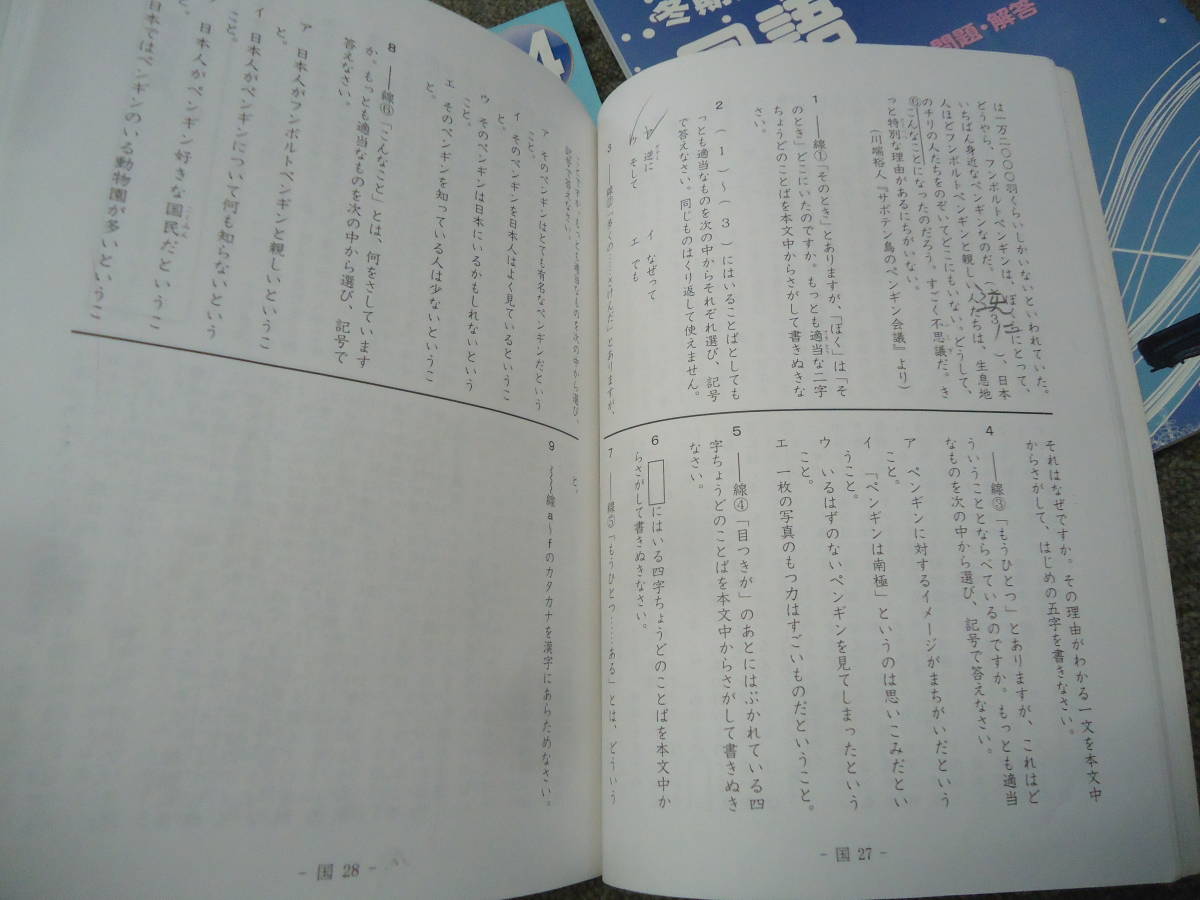 冬期
国語
問題・解答
4
は一万二〇〇〇羽くらいしかいないといわれていた。
どうやら、フンボルトペンギンは、ぼくらにとって、
いちばん身近なペンギンなのだ。(3)、日本
人ほどフンボルトペンギンと親しい人たちは、生息地
のチリの人たちをのぞいてどこにもいない。どうして、
⑥こんなことになったのだろう。すごく不思議だ。き
っと特別な理由があるにちがいない。
(川端裕人『サボテン島のペンギン会議』より)
逆に
1 ――線①「そのとき」とありますが、「ぼくは「そ
のとき」どこにいたのですか。もっとも適当な二字
ちょうどのことばを本文中からさがして書きぬきな
さい。
2 (1)~(3)にはいることばとしても
っとも適当なものを次の中からそれぞれ選び、記号
で答えなさい。同じものはくり返して使えません。
ア 逆に イ なぜって
ウ そして エ でも
3 ――線②「ぼくの……さけんだ」とありますが、
それはなぜですか。その理由がわかる一文を本文中
からさがして、はじめの五字を書きなさい。
4 ――線③「もうひとつ」とありますが、これはど
ういうこととならべているのですか。もっとも適当
なものを次の中から選び、記号で答えなさい。
ア ペンギンに対するイメージがまちがいだという
こと。
イ 「ペンギンは南極」というのは思いこみだとい
うこと。
ウ いるはずのないペンギンを見てしまったという
こと。
エ 一枚の写真のもつ力はすごいものだということ。
5 ――線④「目つきが」のあとにはぶかれている四
字ちょうどのことばを本文中からさがして書きぬき
なさい。
6 □にはいる四字ちょうどのことばを本文中か
らさがして書きぬきなさい。
7 ――線⑤「もうひとつ……ある」とは、どういう
- 国 27 -
ことですか。もっとも適当なものを次の中から選び、
記号で答えなさい。
ア そのペンギンはとても有名なペンギンだという
こと。
イ そのペンギンを日本人はよく見ているというこ
と。
ウ そのペンギンは日本にいるかもしれないという
こと。
エ そのペンギンを知っている人は少ないというこ
と。
8 ――線⑥「こんなこと」とは、何をさしています
か。もっとも適当なものを次の中から選び、記号で
答えなさい。
ア 日本人がフンボルトペンギンと親しいというこ
と。
イ 日本人がペンギンについて何も知らないという
こと。
日本人がペンギン好きな国民だというこ
と。
日本ではペンギンのいる動物園が多いというこ
と。
9 ~~線a~fのカタカナを漢字にあらためなさい。
- 国 28 -